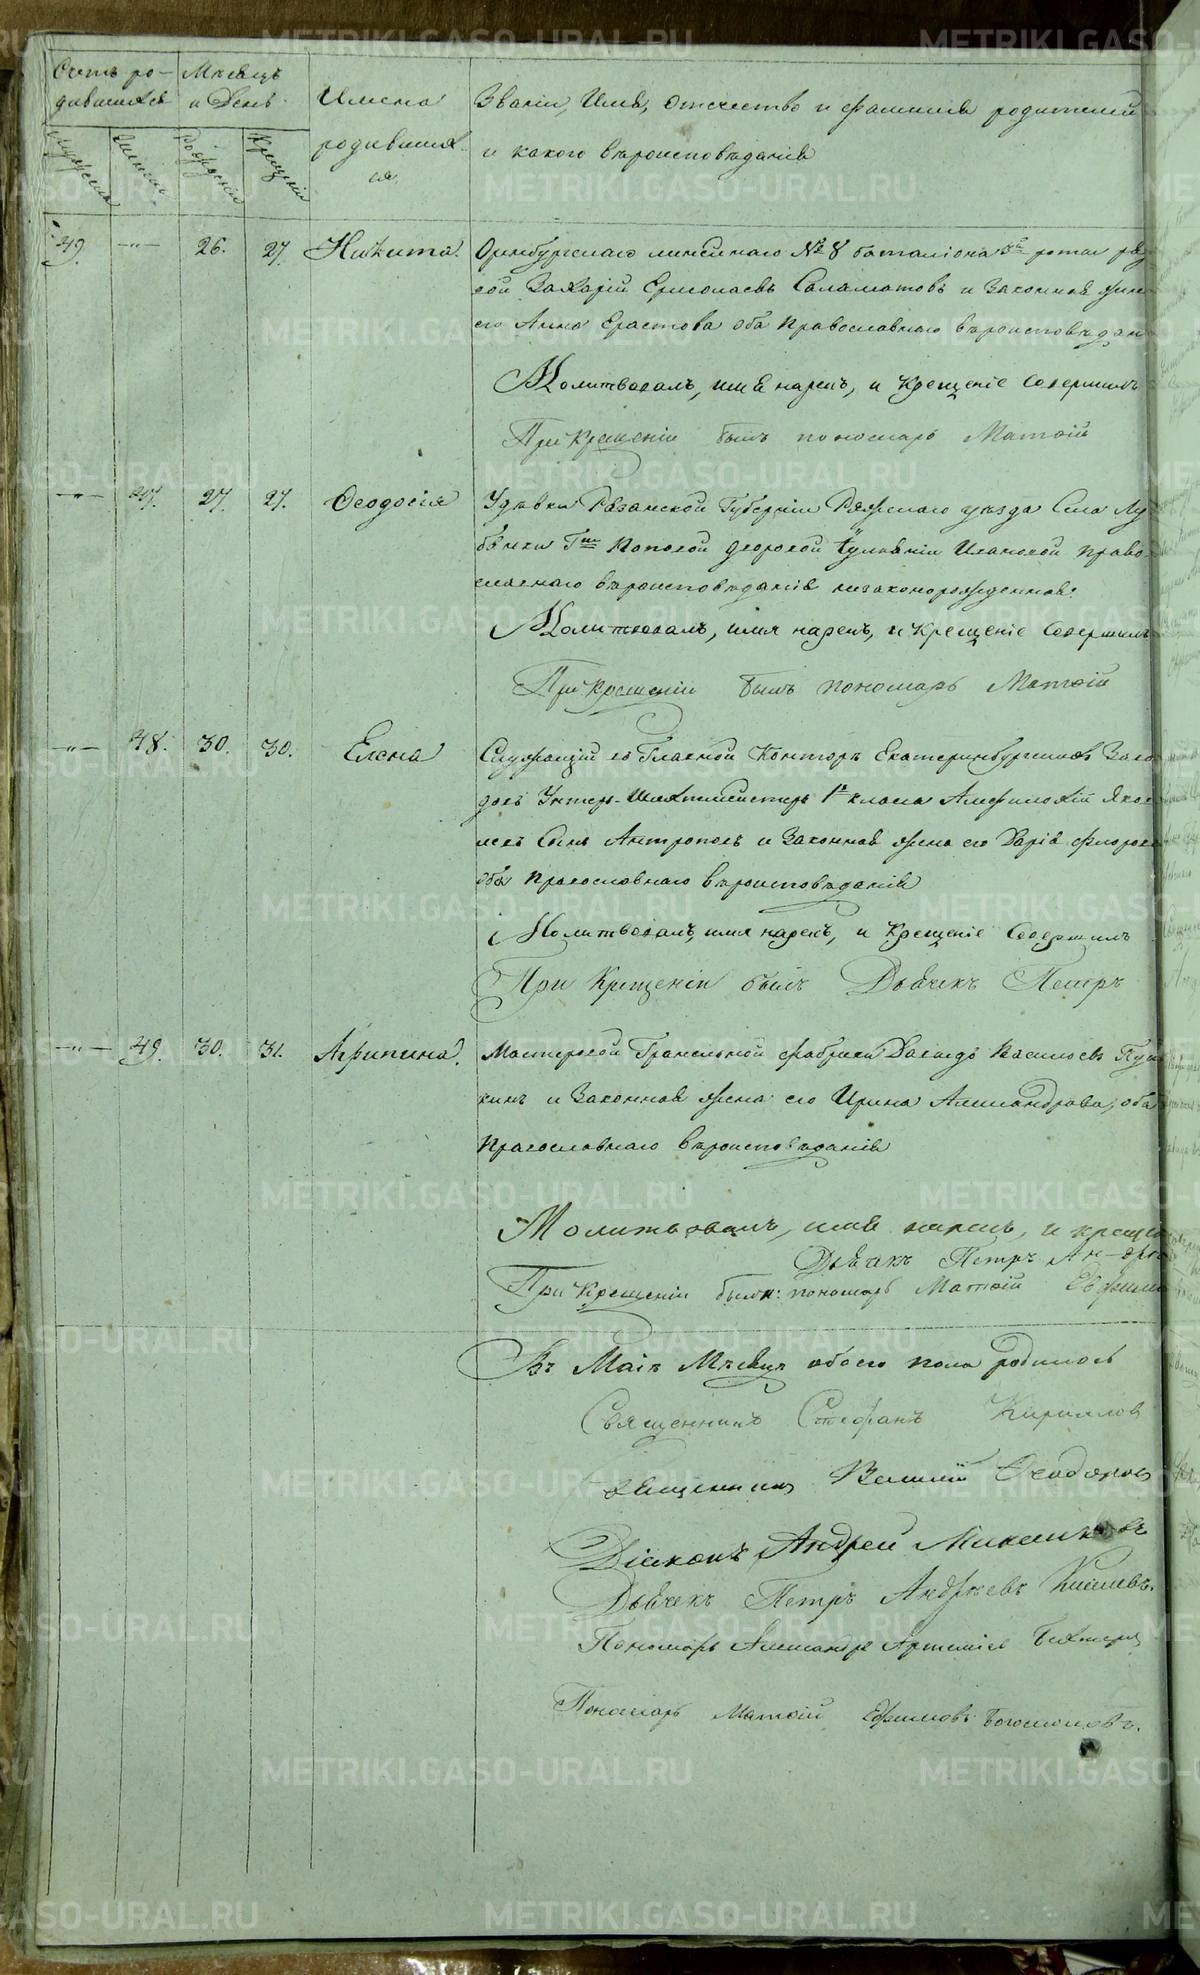 Счетъ ро- Мѣсяцъ
дившихся и День. Имена Званіи, Имя, Отчество и фамилія родителей
Мужеска Женска Рожденія Крещенія родивших- и какого вѣроисповѣданія
ся.
49. —"— 26. 27. Никита. Оренбургскаго линейнаго № 8 баталіона роты ря
вой Захарій Ермолаевъ Саламатовъ и Законная жен
его Анна Ерастова оба Православнаго вѣроисповѣдан
Молитвовалъ, имя нарекъ, и Крещеніе Совершилъ
При Крещеніи былъ пономарь Матѳій
—"— 47. 27. 27. Ѳеодосія Удѣвки Рязанской Губерніи Ряжскаго уѣзда Села
Г-жи Поповой дворовой Ивановой право-
славнаго вѣроисповѣданія незаконорожденная.
Молитвовалъ, имя нарекъ, и Крещеніе Совершилъ
При Крещеніи былъ пономарь Матѳій
—"— 48. 30. 30. Елена Служащій въ Главной Конторѣ Екатеринбургскихъ Заво
довъ Унтеръ-Шихтмейстеръ 1го класса Амфилохій Яков
левъ Сынъ Антроповъ и Законная жена его Дарія Флорова
оба Православнаго вѣроисповѣданія
Молитвовалъ, имя нарекъ, и Крещеніе Совершилъ
При Крещеніи былъ Дьячекъ Петръ
—"— 49. 30. 31. Агрипина. Мастеровой Гранильной фабрики Давидъ Васильевъ
кинъ и Законная жена его Ирина Александрова, оба
Православнаго вѣроисповѣданія
Молитвовалъ, имя нарекъ, и креще
Дьячекъ Петръ Андре
При Крещеніи были: пономарь Матѳій Ефимо
Въ Маіѣ Мѣсяцѣ обоего пола родилось
Священникъ Стефанъ Кириллов
Священникъ Василій Ѳеодоров
Діаконъ Андрей
Дьячекъ Петръ Андрѣевъ
Пономарь Александръ Артеміев
Пономарь Матѳій Ефимовъ Богомоловъ.
METRIKI.GASO-URAL.RU